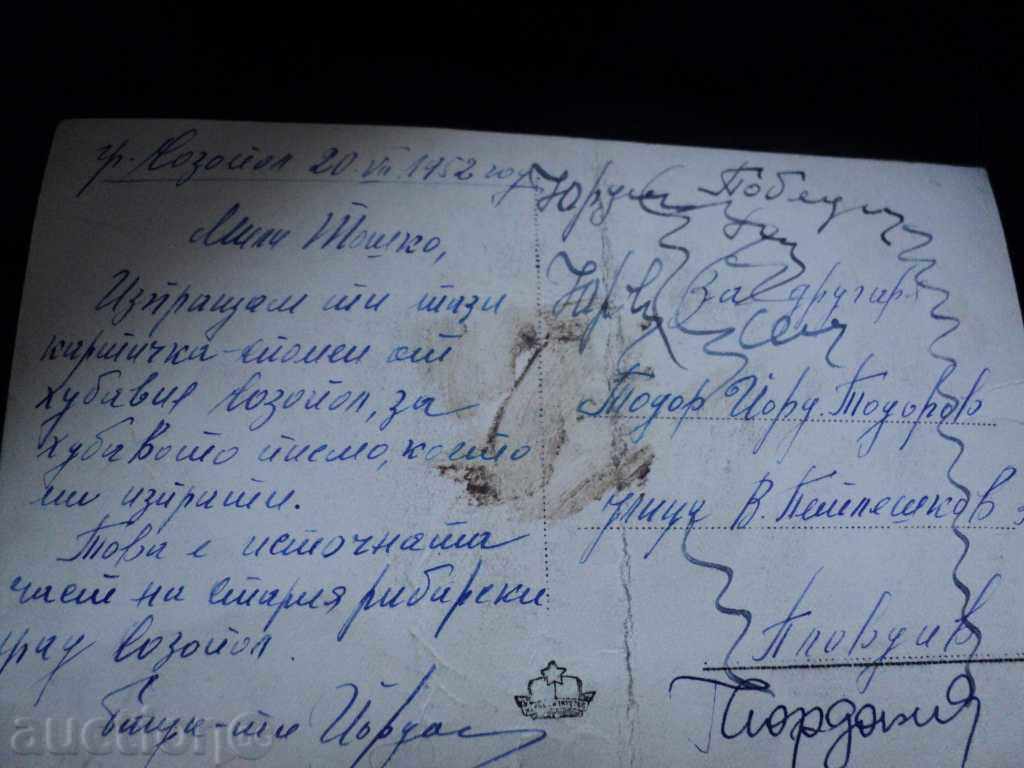 гр. Созопол 20 VII 1952 год
Мили Тошко,
Изпращам ти тази
картичка-спомен от
хубавия Созопол, за
хубавото писмо, което
ми изпрати.
Това е източната
част на стария рибарски
град Созопол.
Йордан
За другаря
Тодор Йорд. Тодоров
улица В. Петлешков
Пловдив
Йордания